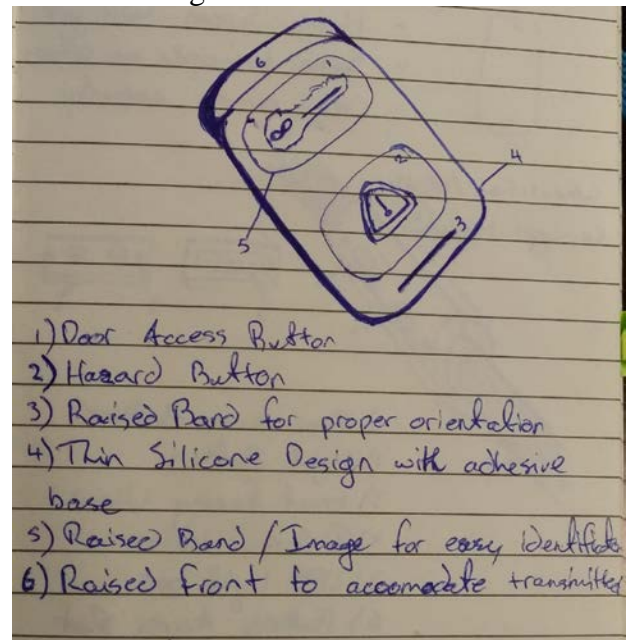 6
1
2
3
4
5
1) Door Access Button
2) Hazard Button
3) Raised Band for proper orientation
4) Thin Silicone Design with adhesive
base
5) Raised Band / Image for easy
6) Raised front to accomodate transmitter